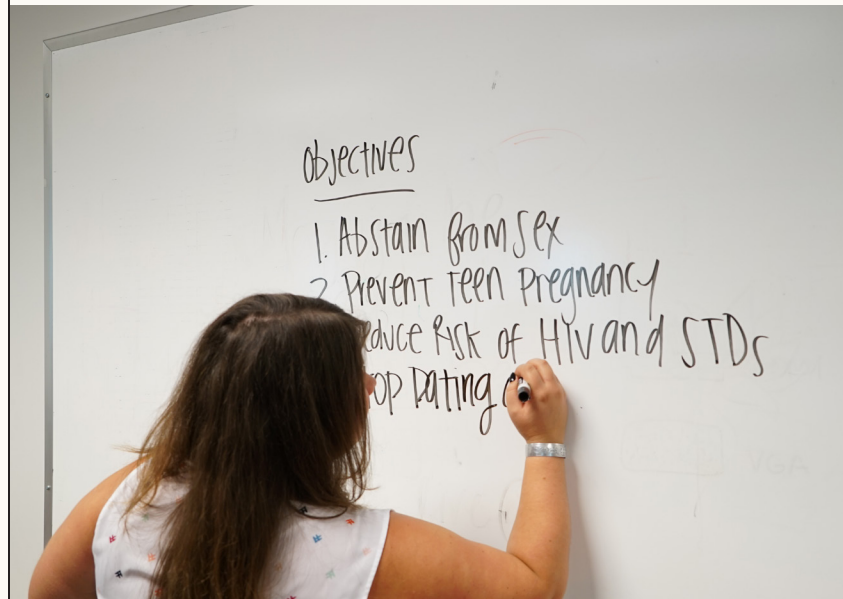 Objectives
1. Abstain from Sex
2. Prevent Teen Pregnancy
Risk of HIV and STDs
Dating
VGA